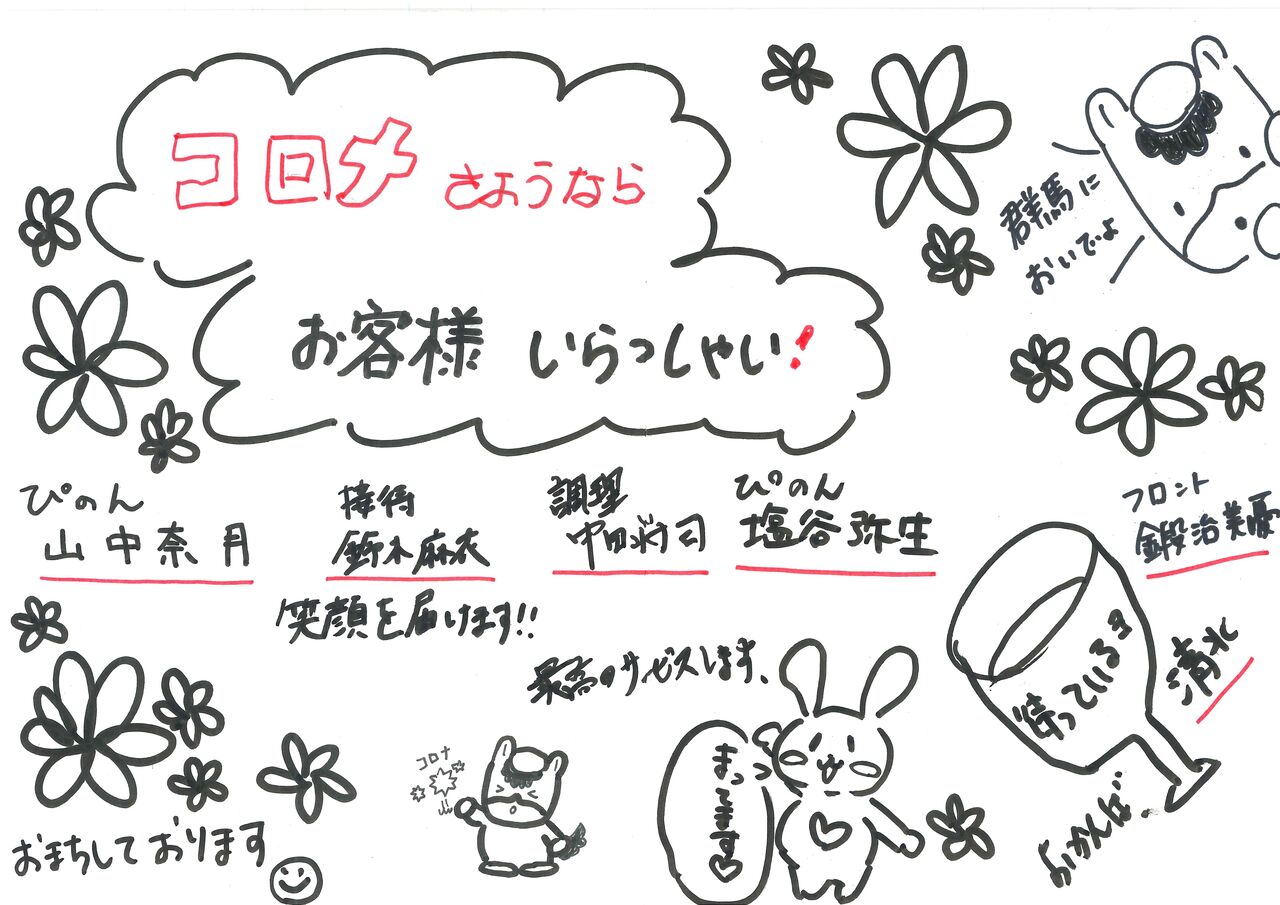 コロナ さようなら
お客様 いらっしゃい!
群馬に
おいでよ
ぴのん
山中奈月
接待
鈴木麻衣
笑顔を届けます!!
調理
ぴのん
塩谷弥生
フロント
鍛治美優
最高のサービスします、
待っているよ
清水
コロナ
まってます♡
おまちしております